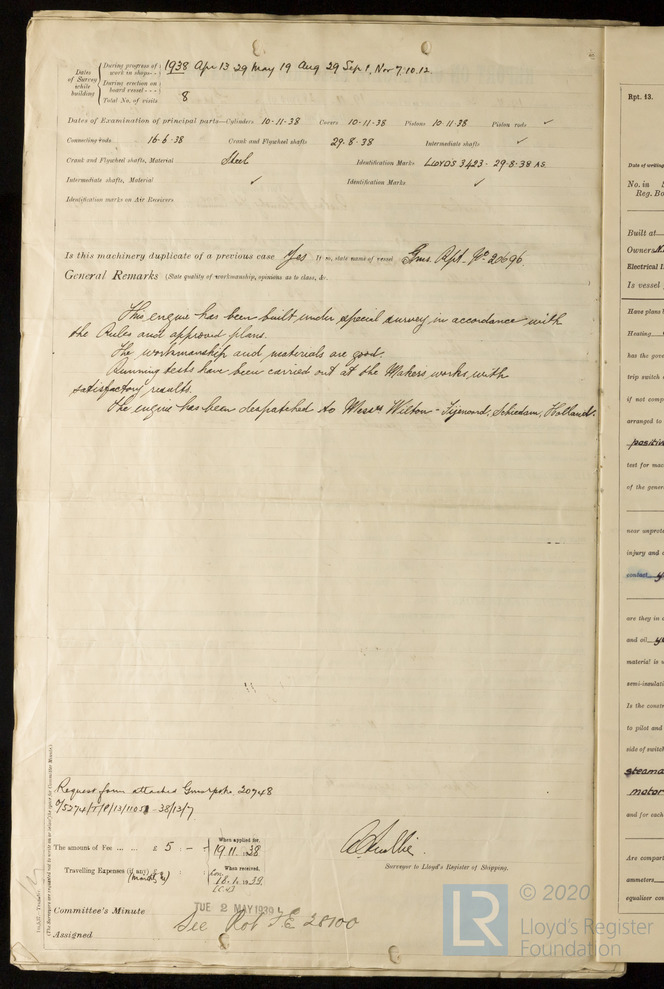 Dates of Survey while building
During progress of work in shops - - 1938 Apr 13 29 May 19 Aug 29 Sep 1, Nov 7. 10. 12.
During erection on board vessel - - -
Total No. of visits 8
Dates of Examination of principal parts—Cylinders 10-11-38 Covers 10-11-38 Pistons 10-11-38 Piston rods ✓
Connecting rods 16-6-38 Crank and Flywheel shafts 29-8-38 Intermediate shafts ✓
Crank and Flywheel shafts, Material Steel Identification Marks LLOYD'S 3423. 29-8-38 A.S.
Intermediate shafts, Material ✓ Identification Marks ✓
Identification marks on Air Receivers
Is this machinery duplicate of a previous case Yes If so, state name of vessel Gms. Rpt. No. 20696.
General Remarks (State quality of workmanship, opinions as to class, &c.
This engine has been built under special survey in accordance with
the Rules and approved plans.
The workmanship and materials are good.
Running tests have been carried out at the Makers works, with
satisfactory results.
The engine has been despatched to Messrs Wilton - Fijenoord, Schiedam, Holland.
Request form attached Gms rpt no. 20748
38/13/7
The amount of Fee ... ... £ 5 : - : When applied for, 19.11.1938
Travelling Expenses (if any) £ : : When received, 18.1.1939
Committee's Minute TUE 2 MAY 1939
See Rot F.E. 28100
Assigned
Surveyor to Lloyd's Register of Shipping.
(The Surveyors are requested not to write on or below the space for Committee Minute.)
Rpt. 13.
Date of writing
No. in
Reg. Bo
Built at
Owners
Electrical I
Is vessel
Have plans
Heating
has the gove
trip switch
if not comp
arranged to
positiv
test for mac
of the gener
near unprote
injury and
contact
are they in
and oil
material is
semi-insulati
Is the constr
to pilot and
side of switch
steama
motor
and for each
Are compart
ammeters
equaliser con
LR © 2020
Lloyd's Register
Foundation